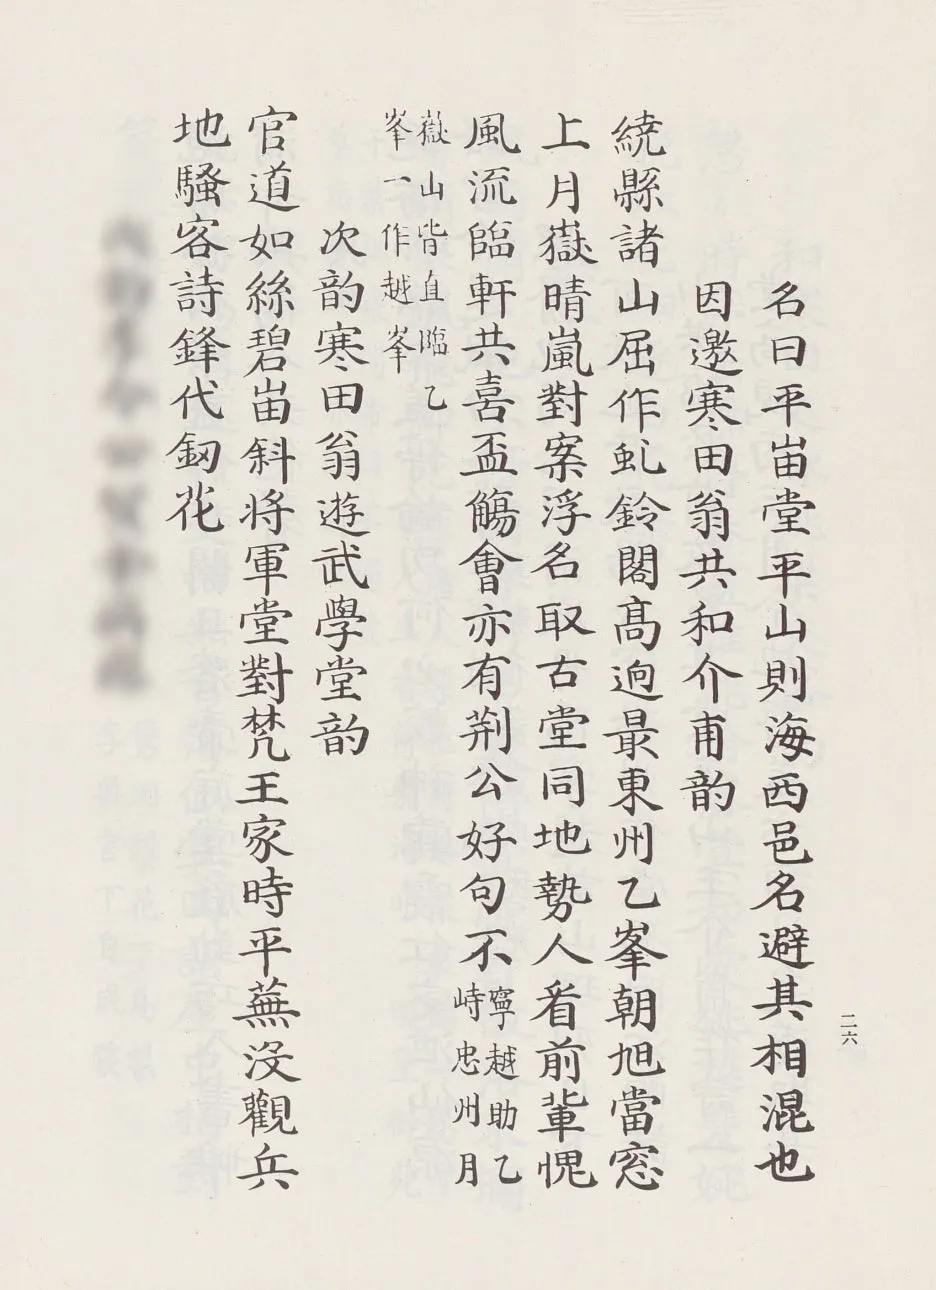 二六
名曰平峀堂平山則海西邑名避其相混也
因邀寒田翁共和介甫韵
繞縣諸山屈作虬鈴閣髙逈最東州乙峯朝旭當窓
上月嶽晴嵐對案浮名取古堂同地勢人看前軰愧
風流臨軒共喜盃觴會亦有荆公好句不
寧越助乙
峙忠州月
嶽山皆直臨乙
峯一作越峯
次韵寒田翁遊武學堂韵
官道如絲碧峀斜將軍堂對梵王家時平蕪沒觀兵
地騷客詩鋒代釼花